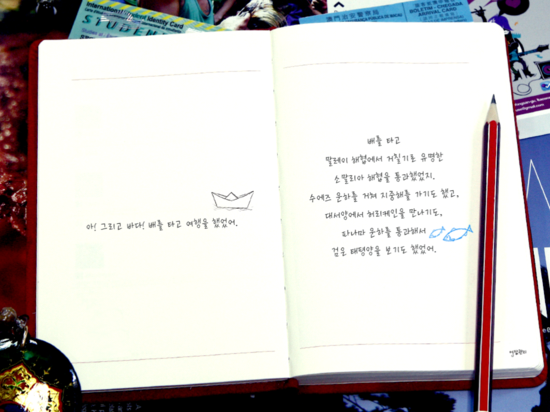 International Student Identity Card
STUDENT
BOLETIM DE CHEGADA
ARRIVAL CARD
아! 그리고 바다! 배를 타고 여행을 했었어.
배를 타고
말레이 해협에서 거칠기로 유명한
소말리아 해협을 통과했었지.
수에즈 운하를 거쳐 지중해를 가기도 했고,
대서양에서 허리케인을 만나기도,
파나마 운하를 통과해서
검은 태평양을 보기도 했었어.